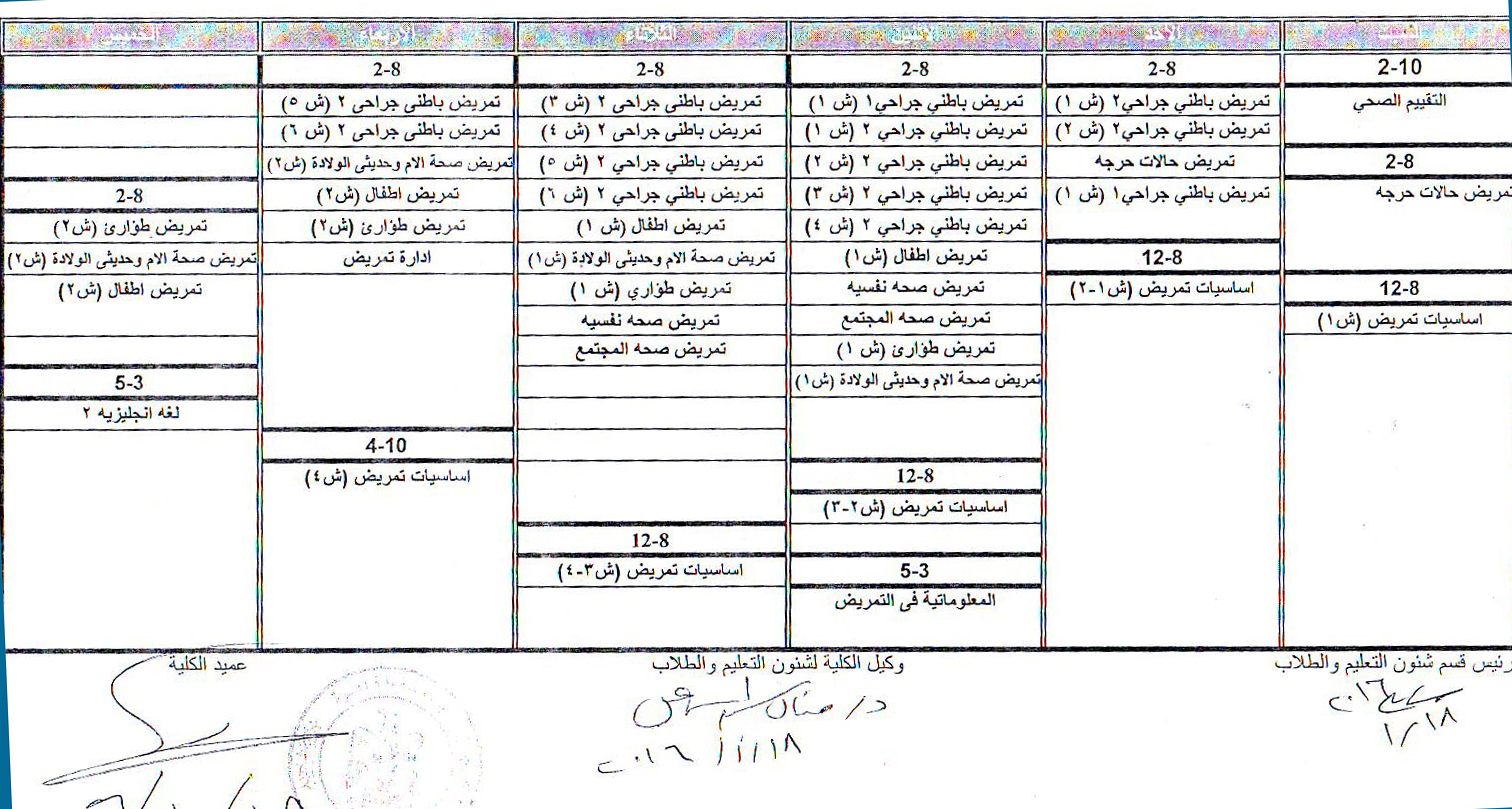 السبت
الأحد
الاثنين
الثلاثاء
الأربعاء
الخميس
2-10
التقييم الصحي
2-8
تمريض حالات حرجه
12-8
اساسيات تمريض (ش١)
2-8
تمريض باطني جراحي٢ (ش ١)
تمريض باطني جراحي٢ (ش ٢)
تمريض حالات حرجه
تمريض باطني جراحي١ (ش ١)
12-8
اساسيات تمريض (ش١-٢)
2-8
تمريض باطني جراحي١ (ش ١)
تمريض باطني جراحي ٢ (ش ١)
تمريض باطني جراحي ٢ (ش ٢)
تمريض باطني جراحي ٢ (ش ٣)
تمريض باطني جراحي ٢ (ش ٤)
تمريض اطفال (ش١)
تمريض صحه نفسيه
تمريض صحه المجتمع
تمريض طوارئ (ش ١)
تمريض صحة الام وحديثى الولادة (ش١)
12-8
اساسيات تمريض (ش٢-٣)
5-3
المعلوماتية فى التمريض
2-8
تمريض باطنى جراحى ٢ (ش ٣)
تمريض باطنى جراحى ٢ (ش ٤)
تمريض باطني جراحي ٢ (ش ٥)
تمريض باطني جراحي ٢ (ش ٦)
تمريض اطفال (ش ١)
تمريض صحة الام وحديثى الولادة (ش١)
تمريض طواري (ش ١)
تمريض صحه نفسيه
تمريض صحه المجتمع
12-8
اساسيات تمريض (ش٣-٤)
2-8
تمريض باطنى جراحى ٢ (ش ٥)
تمريض باطنى جراحى ٢ (ش ٦)
تمريض صحة الام وحديثى الولادة (ش٢)
تمريض اطفال (ش٢)
تمريض طوارئ (ش٢)
ادارة تمريض
4-10
اساسيات تمريض (ش٤)
2-8
تمريض طوارئ (ش٢)
تمريض صحة الام وحديثى الولادة (ش٢)
تمريض اطفال (ش٢)
5-3
لغه انجليزيه ٢
رئيس قسم شئون التعليم والطلاب
٢٠١٦
١/١٨
وكيل الكلية لشئون التعليم والطلاب
د/ حنان
٢٠١٦/١/١٨
عميد الكلية